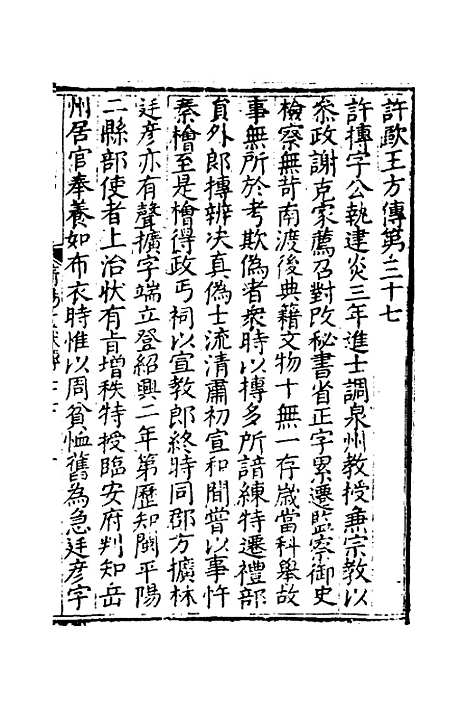 許歐王方傳第三十七
許摶字公執建炎三年進士調泉州教授兼宗教以
叅政謝克家薦召對改秘書省正字累遷監察御史
檢察無苛南渡後典籍文物十無一存歲當科舉故
事無所於考欺偽者衆時以摶多所諳練特遷禮部
員外郎摶辨决真偽士流清肅初宣和間嘗以事忤
秦檜至是檜得政丐祠以宣教郎終時同郡方擴林
廷彥亦有聲擴字端立登紹興二年第歷知閩平陽
二縣部使者上治狀有旨增秩特授臨安府判知岳
州居官奉養如布衣時惟以周貧恤舊為急廷彥字